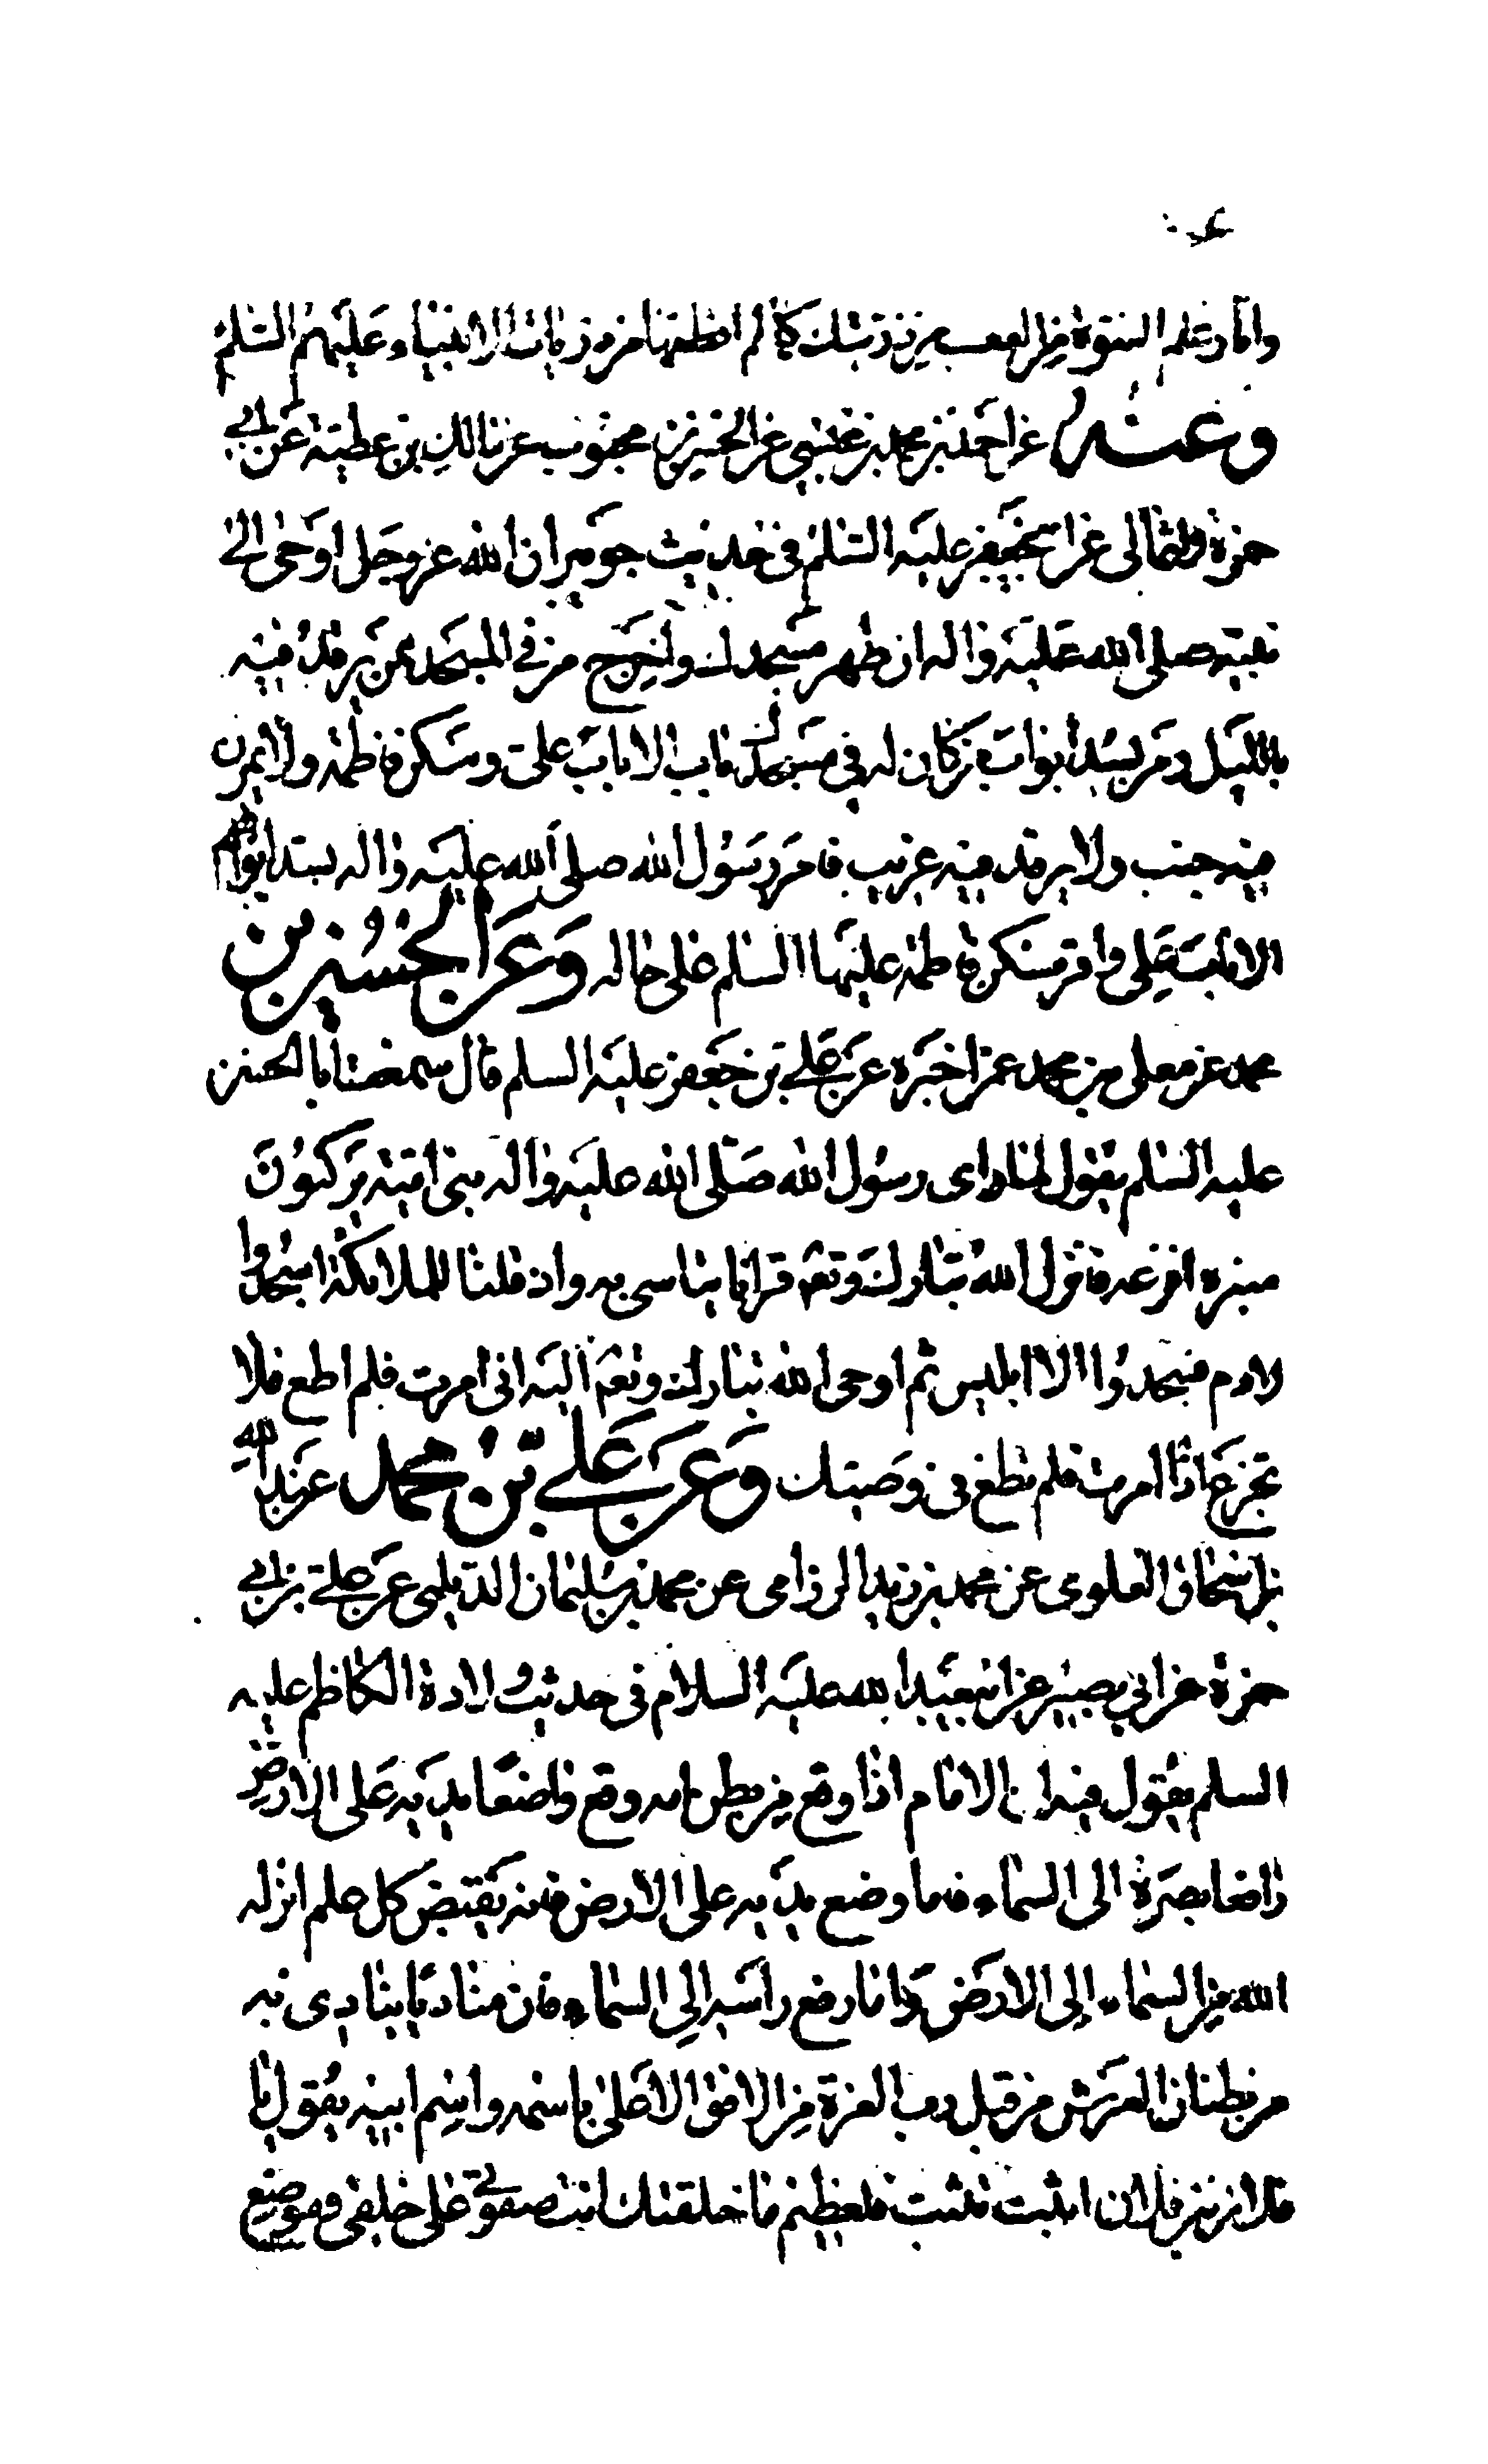 واثار علم النبوة من العقب من ذريتك كما لم اقطعها من ذريات الانبياء عليهم السلم
وعنه عن احمد بن محمد بن عيسى عن الحسن بن محبوب عن مالك بن عطية عن ابي
حمزة الثمالى عن ابي جعفر عليه السلم في حديث جويبر ان الله عز وجل اوحى الى
نبيه صلى الله عليه واله ان طهر مسجدك واخرج من في المسجد ممن يرقد فيه
بالليل ومر بسد ابواب من كان له في مسجدك باب الا باب على ومسكن فاطمة ولا يمرن
فيه جنب ولا يرقد فيه غريب فامر رسول الله صلى الله عليه واله بسد ابوابهم
الا باب على واقر مسكن فاطمة عليها السلم على حاله وعن الحسين بن
محمد عن معلى بن محمد عمن اخبره عن علي بن جعفر عليه السلم قال سمعت ابا الحسن
عليه السلم يقول لما راى رسول الله صلى الله عليه واله بني امية يركبون
منبره افزعه فانزل الله تبارك وتعالى قرانا يتاسى به واذ قلنا للملائكة اسجدوا
لادم فسجدوا الا ابليس ثم اوحى الله تبارك وتعالى اليه انى امرت فلم اطع فلا
تجزع اذا امرت فلم تطع في وصيتك وعن علي بن محمد عن عبد الله
بن اسحاق العلوى عن محمد بن زيد الرزامى عن محمد بن سليمان الديلمى عن علي بن ابي
حمزة عن ابي بصير عن ابي عبد الله عليه السلام في حديث ولادة الكاظم عليه
السلم يقول فيه ان الامام اذا وقع من بطن امه وقع واضعا يديه على الارض
رافعا بصره الى السماء فاما وضع يديه على الارض فانه يقبض كل علم انزله
الله من السماء الى الارض واما رفع راسه الى السماء فان مناديا ينادى به
من بطنان العرش من قبل رب العزة من الافق الاعلى باسمه واسم ابيه يقول يا
فلان بن فلان اثبت تثبت فلعظيم ما خلقتك انت صفوتي على خلقى وموضع